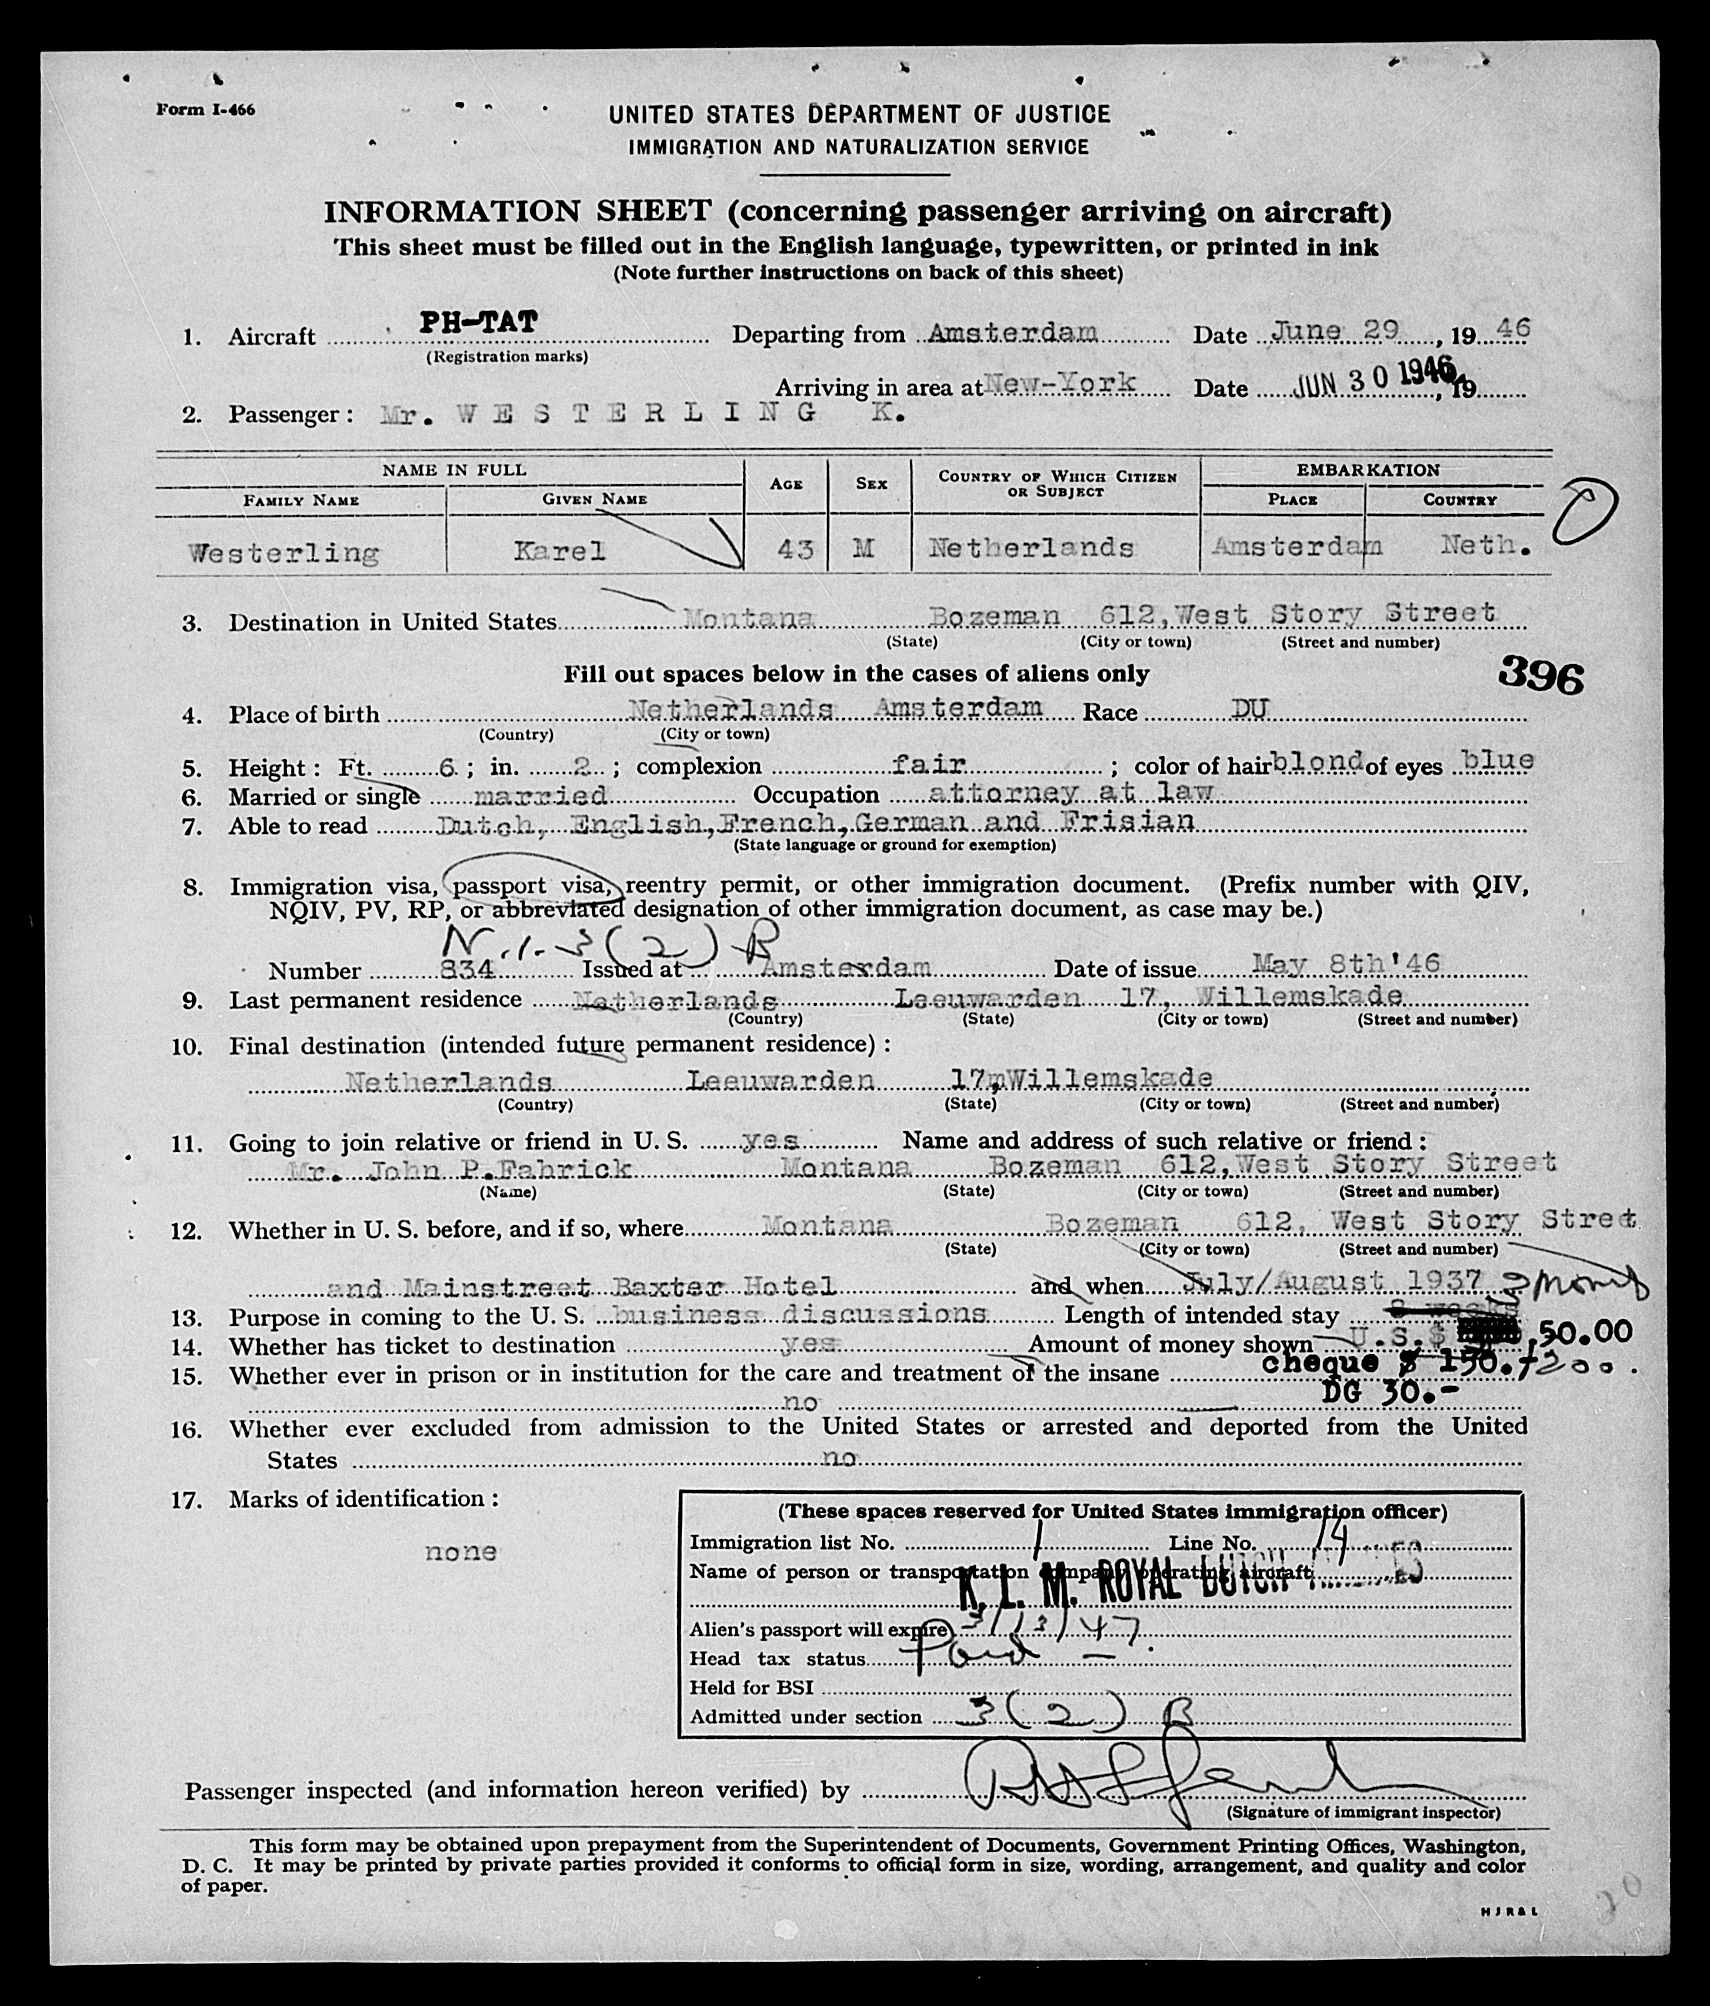 Form I-466
UNITED STATES DEPARTMENT OF JUSTICE
IMMIGRATION AND NATURALIZATION SERVICE
INFORMATION SHEET (concerning passenger arriving on aircraft)
This sheet must be filled out in the English language, typewritten, or printed in ink
(Note further instructions on back of this sheet)
1. Aircraft PH-TAT Departing from Amsterdam Date June 29, 19 46
(Registration marks)
Arriving in area at New-York Date JUN 30 1946, 19
2. Passenger: Mr. W E S T E R L I N G K.
NAME IN FULL AGE SEX COUNTRY OF WHICH CITIZEN OR SUBJECT EMBARKATION
FAMILY NAME GIVEN NAME PLACE COUNTRY
Westerling Karel 43 M Netherlands Amsterdam Neth.
3. Destination in United States Montana Bozeman 612, West Story Street
(State) (City or town) (Street and number)
Fill out spaces below in the cases of aliens only
396
4. Place of birth Netherlands Amsterdam Race DU
(Country) (City or town)
5. Height: Ft. 6; in. 2; complexion fair; color of hair blond of eyes blue
6. Married or single married Occupation attorney at law
7. Able to read Dutch, English, French, German and Frisian
(State language or ground for exemption)
8. Immigration visa, passport visa, reentry permit, or other immigration document. (Prefix number with QIV,
NQIV, PV, RP, or abbreviated designation of other immigration document, as case may be.)
3(2) B
Number 834 Issued at Amsterdam Date of issue May 8th'46
9. Last permanent residence Netherlands Leeuwarden 17, Willemskade
(Country) (State) (City or town) (Street and number)
10. Final destination (intended future permanent residence):
Netherlands Leeuwarden 17, Willemskade
(Country) (State) (City or town) (Street and number)
11. Going to join relative or friend in U. S. yes Name and address of such relative or friend:
Mr. John P. Fabrick Montana Bozeman 612, West Story Street
(Name) (State) (City or town) (Street and number)
12. Whether in U. S. before, and if so, where Montana Bozeman 612, West Story Street
(State) (City or town) (Street and number)
and Mainstreet Baxter Hotel and when July/August 1937
13. Purpose in coming to the U. S. business discussions Length of intended stay 8 weeks
14. Whether has ticket to destination yes Amount of money shown U.S.$ 50.00
15. Whether ever in prison or in institution for the care and treatment of the insane cheque $ 150.
no DG 30.-
16. Whether ever excluded from admission to the United States or arrested and deported from the United
States no
17. Marks of identification:
none
(These spaces reserved for United States immigration officer)
Immigration list No. 1 Line No. 14
Name of person or transportation company operating aircraft
K. L. M. ROYAL DUTCH AIRLINES
Alien's passport will expire 3/13/47.
Head tax status Paid -
Held for BSI
Admitted under section 3(2) B
Passenger inspected (and information hereon verified) by
(Signature of immigrant inspector)
This form may be obtained upon prepayment from the Superintendent of Documents, Government Printing Offices, Washington,
D. C. It may be printed by private parties provided it conforms to official form in size, wording, arrangement, and quality and color
of paper.
H J R & L